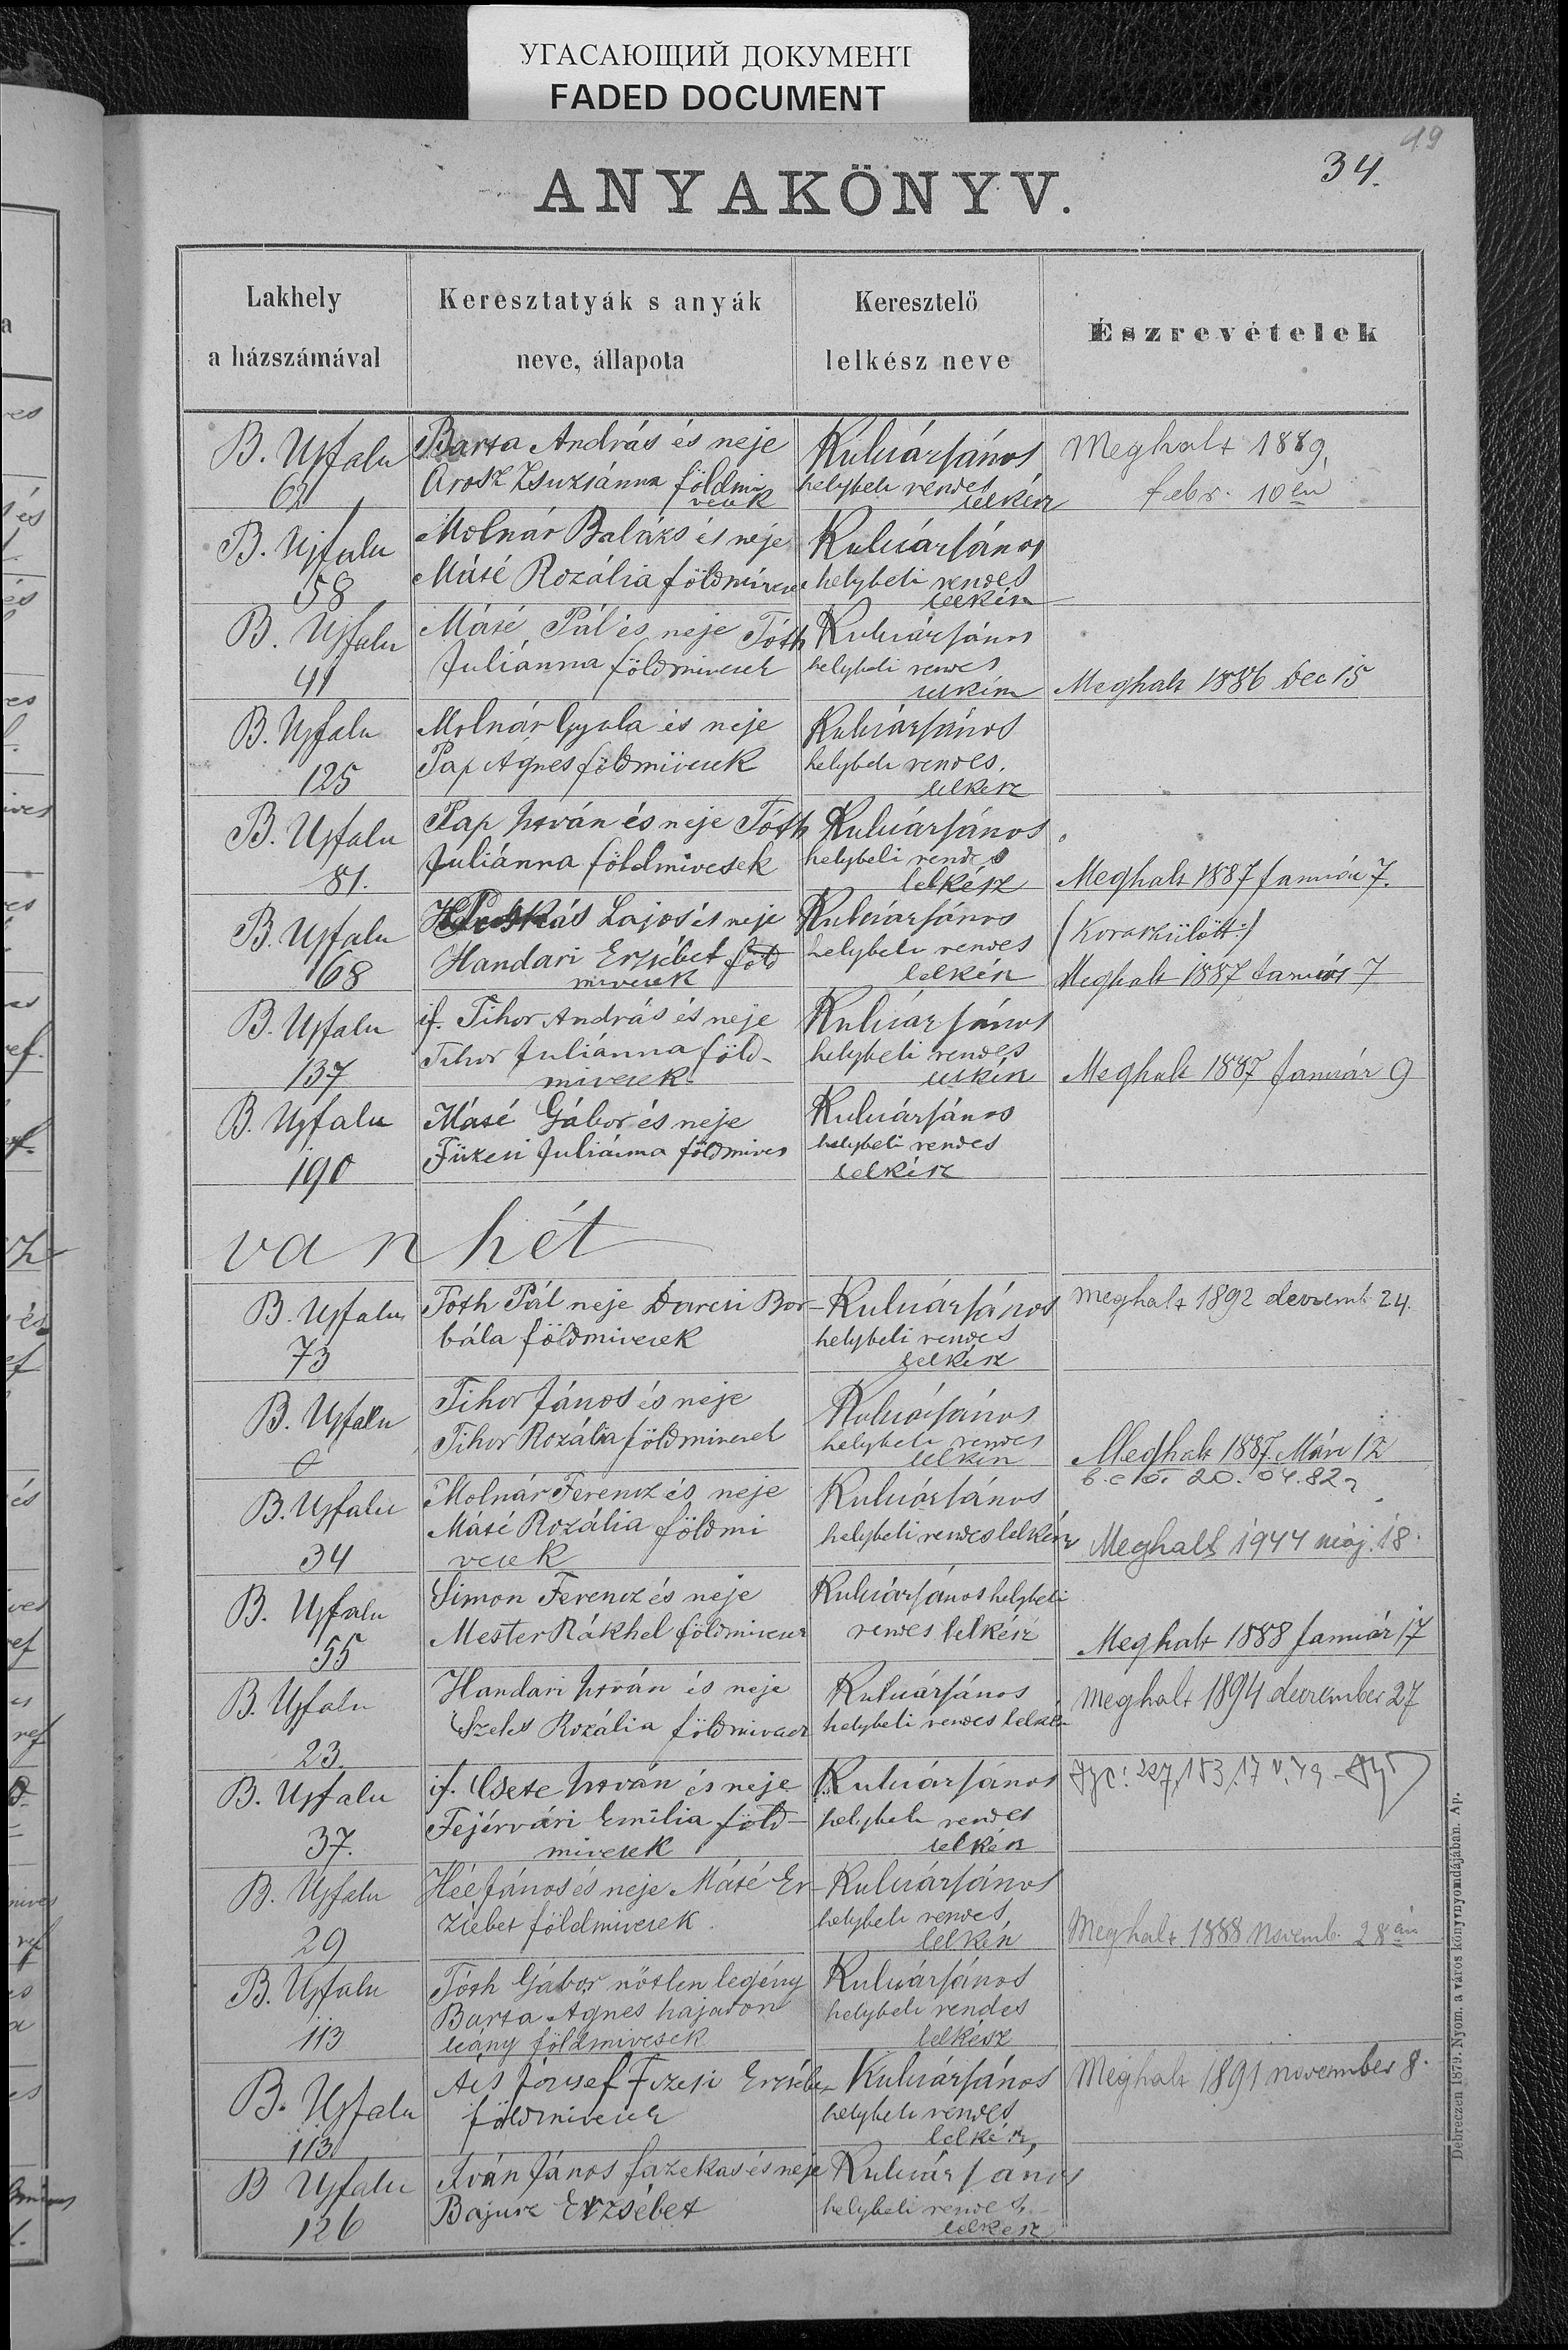 УГАСАЮЩИЙ ДОКУМЕНТ
FADED DOCUMENT
19
34.
ANYAKÖNYV.
Lakhely
a házszámával
Keresztatyák s anyák
neve, állapota
Keresztelö
lelkész neve
Észrevételek
B. Ujfalu
62
Barta András és neje
Orosz Zsuzsánna földmi
vesek
Kulcsár János
helybeli rendes
lelkész
Meghalt 1889,
febr. 10én
B. Ujfalu
58
Molnár Balázs és neje
Máté Rozália földmives
Kulcsár János
helybeli rendes
lelkész
B. Ujfalu
41
Máté Pál és neje Tóth
Juliánna földmivesek
Kulcsár János
helybeli rendes
lelkész
Meghalt 1886 Dec 15
B. Ujfalu
125
Molnár Gyula és neje
Pap Ágnes földmivesek
Kulcsár János
helybeli rendes.
lelkész
B. Ujfalu
81.
Pap István és neje Tóth
Juliánna földmivesek
Kulcsár János
helybeli rendes
lelkész
Meghalt 1887 Január 7.
B. Ujfalu
168
Lajos és neje
Handari Erzsébet föld
mivesek
Kulcsár János
helybeli rendes
lelkész
(Koraszülött:)
Meghalt 1887 Január 7
B. Ujfalu
137
if. Tihor András és neje
Tihor Juliánna föld-
mivesek
Kulcsár János
helybeli rendes
lelkész
Meghalt 1887 Január 9
B. Ujfalu
190
Máté Gábor és neje
Füzesi Juliánna földmives
Kulcsár János
helybeli rendes
lelkész
van hét
B. Ujfalu
73
Tóth Pál neje Darcsi Bor-
bála földmivesek
Kulcsár János
helybeli rendes
lelkész
meghalt 1892 decemb. 24.
B. Ujfalu
Tihor János és neje
Tihor Rozália földmivesek
Kulcsár János
helybeli rendes
lelkész
Meghalt 1887. Márc 12
20.04.82
B. Ujfalu
34
Molnár Ferencz és neje
Máté Rozália földmi
vesek
Kulcsár János
helybeli rendes lelkész
Meghalt 1944 máj. 18.
B. Ujfalu
55
Simon Ferencz és neje
Mester Rákhel földmivesek
Kulcsár János helybeli
rendes lelkész
Meghalt 1888 Január 17
B. Ujfalu
23
Handari István és neje
Szeles Rozália földmivesek
Kulcsár János
helybeli rendes lelkész
meghalt 1894 deczember 27
B. Ujfalu
37.
if. Csete István és neje
Fejérvári Emilia föld-
mivesek
Kulcsár János
helybeli rendes
lelkész
B. Ujfalu
29
János és neje Máté Er-
zsébet földmivesek
Kulcsár János
helybeli rendes
lelkész
Meghalt 1888 Novemb. 28án
B. Ujfalu
113
Tóth Gábor nötlen legény
Barta Ágnes hajadon
leány földmivesek
Kulcsár János
helybeli rendes
lelkész
B. Ujfalu
113
Ács József Füzesi Erzsébet
földmivesek
Kulcsár János
helybeli rendes
lelkész
Meghalt 1891 november 8.
B Ujfalu
126
Iván János fazekas és neje
Bajusz Erzsébet
Kulcsár János
helybeli rendes
lelkész
Debreczen 1879. Nyom. a város könyvnyomdájában. Ap.